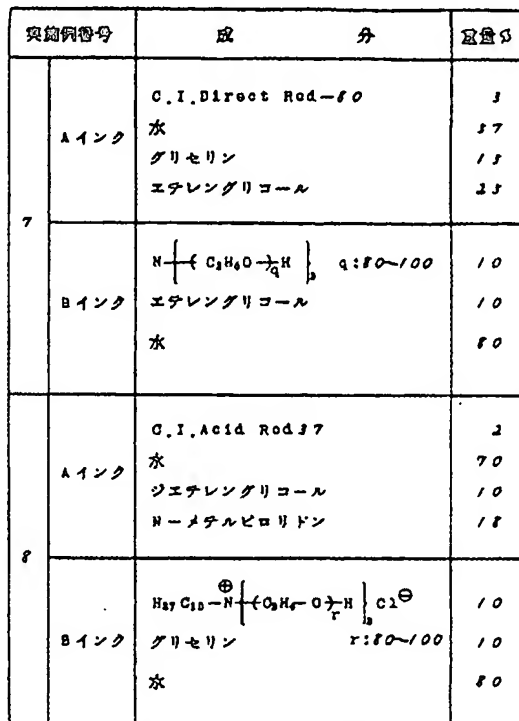 実施例番号 成 分 重量%
7
Aインク
C.I.Direct Red-80 3
水 57
グリセリン 15
エチレングリコール 25
Bインク
N[(C3H6O)qH]3 q:80~100 10
エチレングリコール 10
水 80
8
Aインク
C.I.Acid Red37 2
水 70
ジエチレングリコール 10
N-メチルピロリドン 18
Bインク
H37C18-N⊕[(C3H6-O)rH]3Cl⊖ 10
グリセリン r:80~100 10
水 80